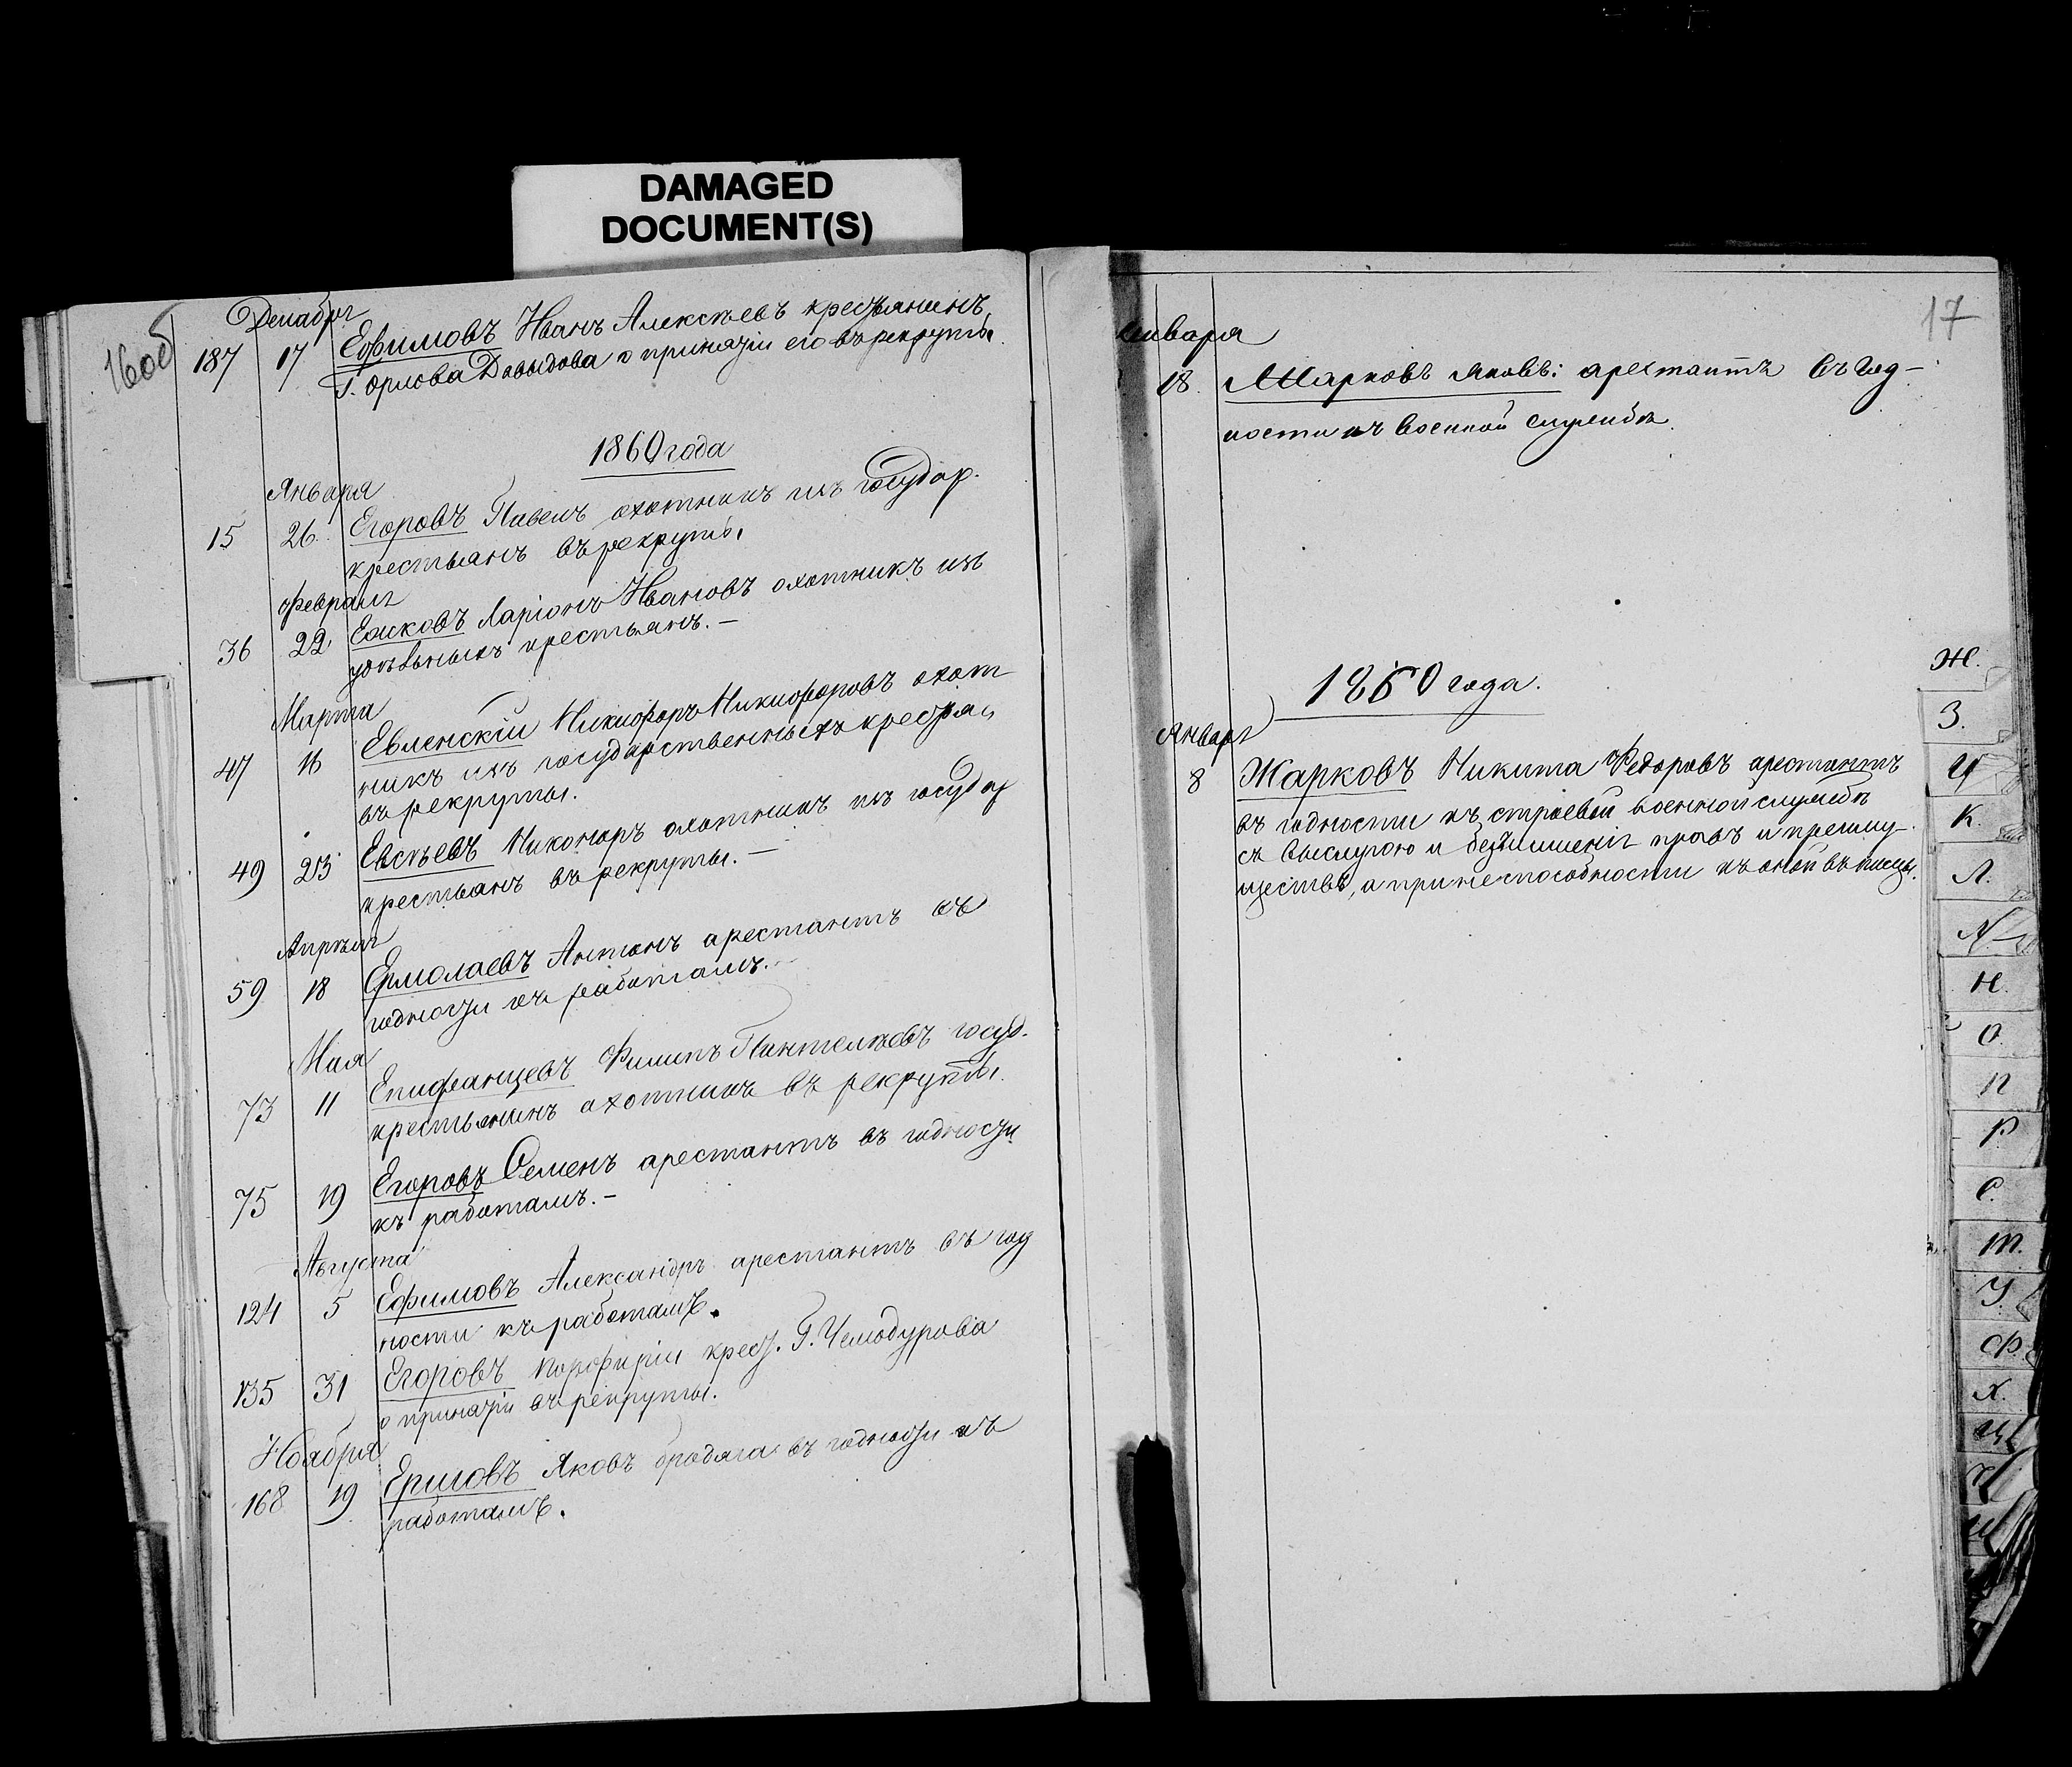 DAMAGED
DOCUMENT(S)
16об
Декабрг
187 17 Ефимовъ Иванъ Алексѣевъ крестьянинъ
Г. Орлова Давыдова о принятіи его въ рекруты
1860 года
Января
15 26 Егоровъ Павелъ охотникъ изъ государ.
крестьянъ въ рекруты.
Февраля
36 22 Ларіонъ Ивановъ охотникъ изъ
удѣльныхъ крестьянъ. –
Марта
47 16 Евленскій Никифоръ Никифоровъ охот
никъ изъ государственныхъ крестьян
въ рекруты.
49 23 Евсѣевъ Никоноръ охотникъ изъ государ
крестьянъ въ рекруты. –
Апрѣля
59 18 Ермолаевъ Антонъ арестантъ въ
годности къ работамъ. –
Мая
73 11 Епифанцевъ Филипъ Пантелѣевъ госуд.
крестьянинъ охотникъ въ рекруты.
75 19 Егоровъ Семенъ арестантъ въ годности
къ работамъ. –
Августа
124 5 Ефимовъ Александръ арестантъ въ год
ности къ работамъ.
135 31 Егоровъ Порфирій крест. Г. Чемодурова
о принятіи въ рекруты.
Ноября
168 19 Ершовъ Яковъ бродяга въ годности къ
работамъ.
17
Января
18. Жарковъ Яковъ: арестантъ въ год–
ности къ военной службѣ.
1860 года.
Января
8 Жарковъ Никита Федоровъ арестантъ
въ годности къ строевой военной службѣ
съ выслугою и безъ лишенія правъ и преиму–
ществъ, а при неспособности къ оной въ писцы.
Ж.
З.
И
К.
Л.
М
Н.
О.
П
Р
С.
Т.
У.
Ф.
Х.
Ц
Ч
Ш